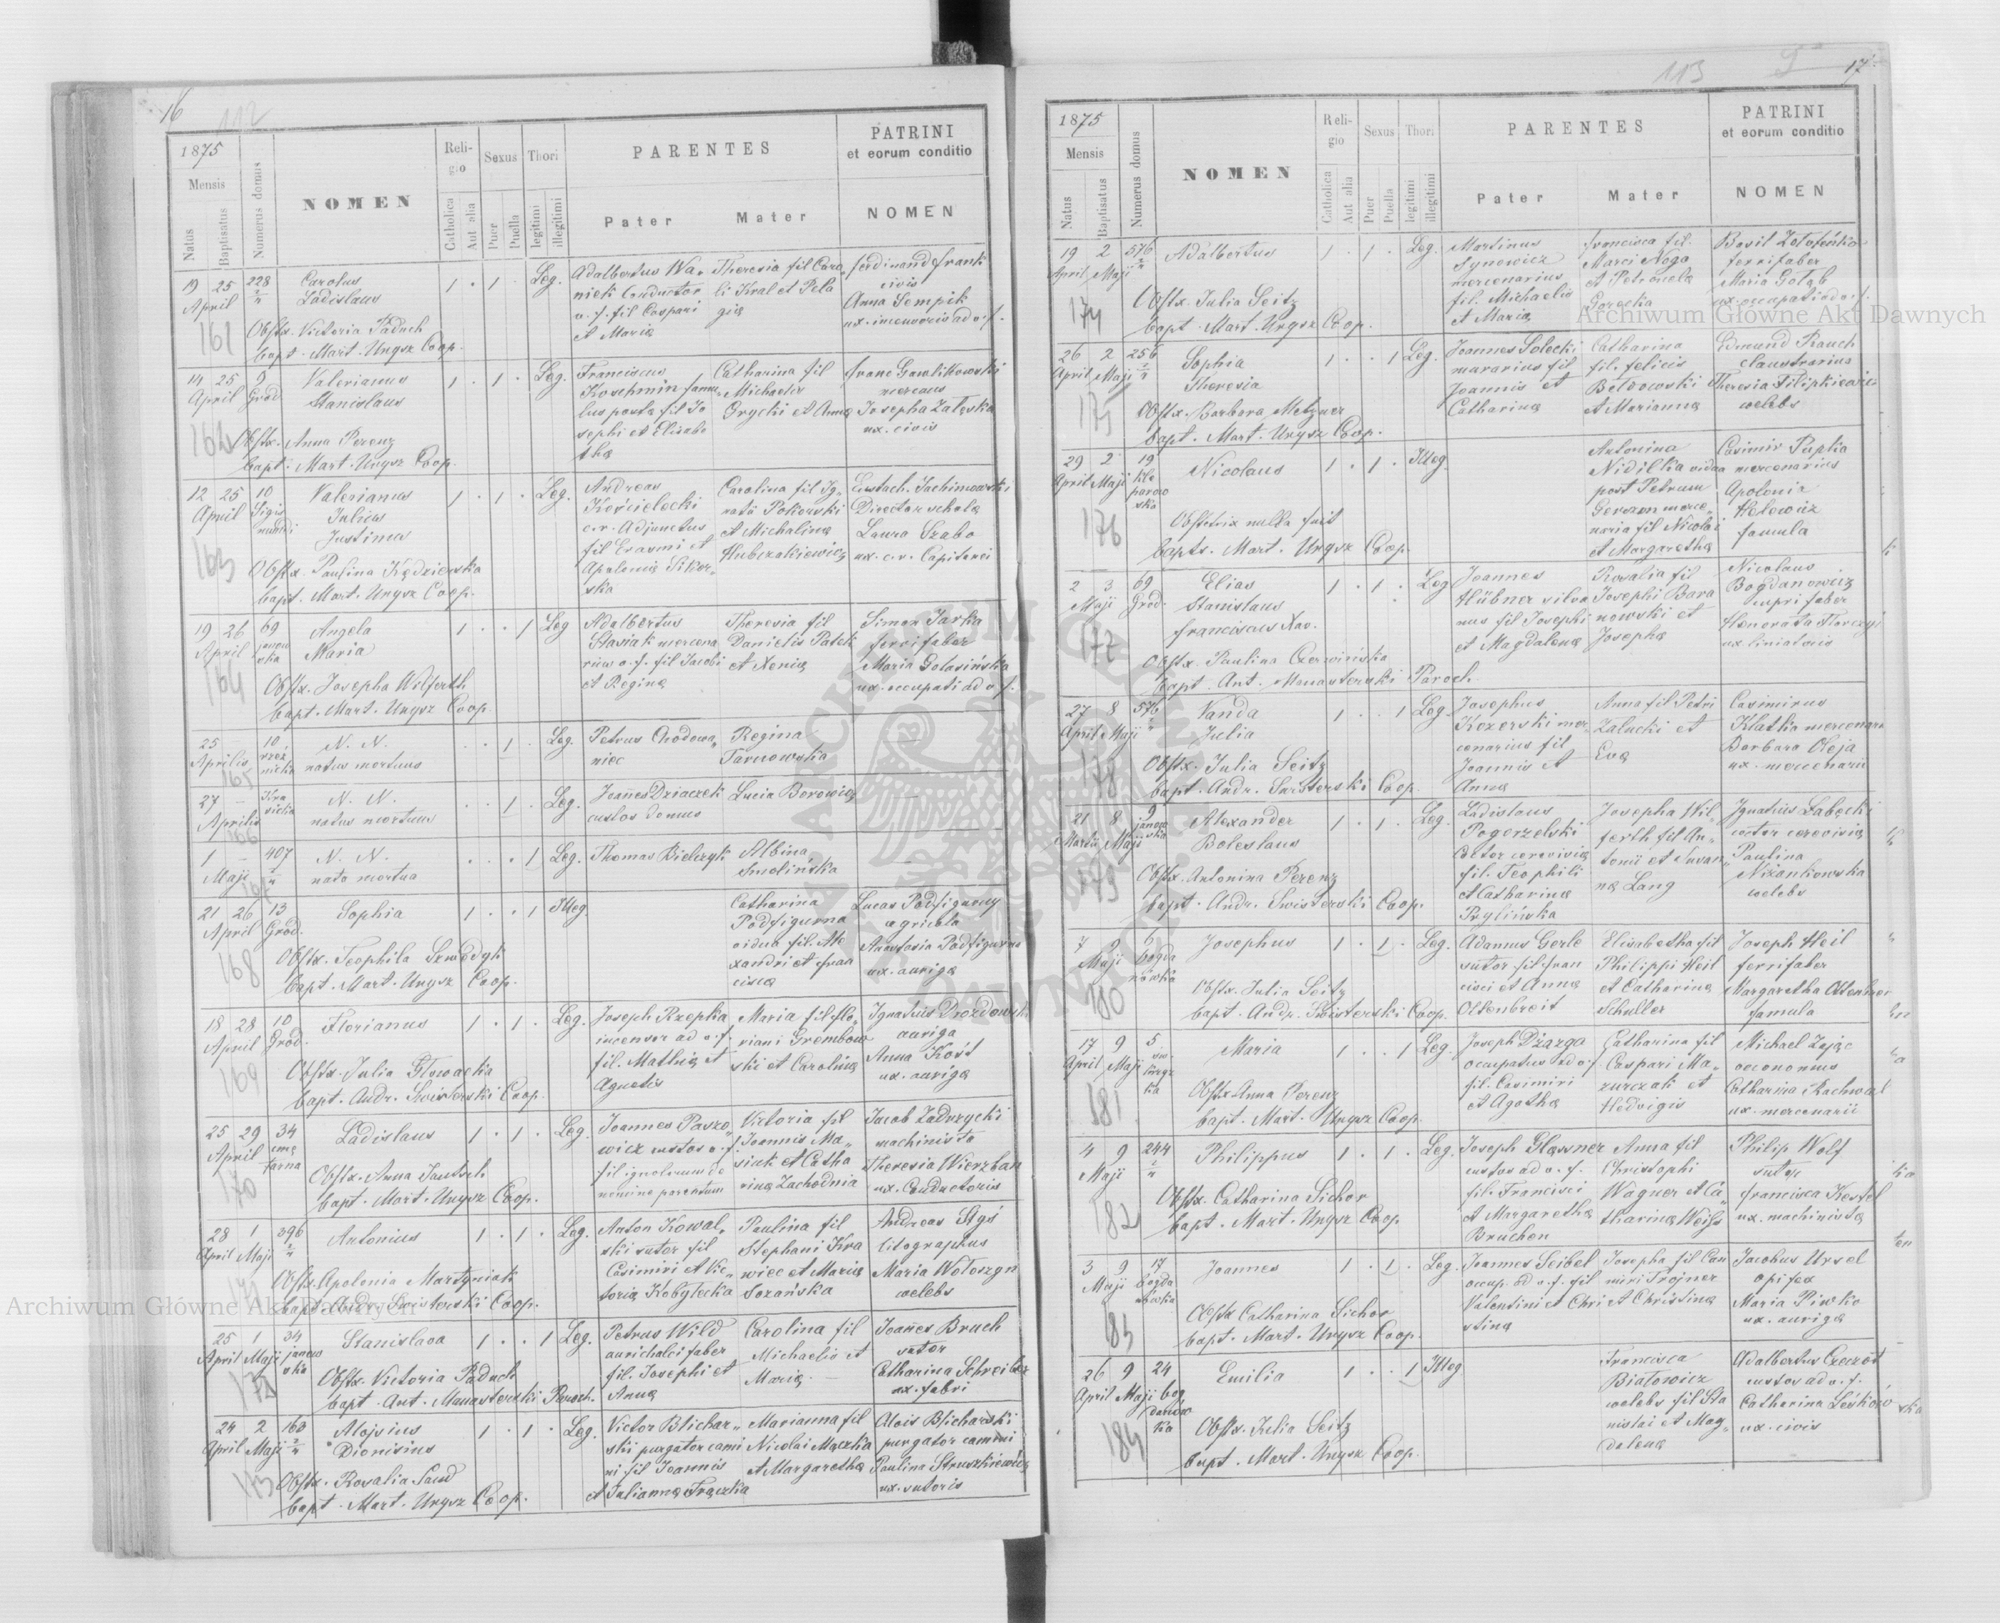 16
112
1875
Mensis
Natus
Baptisatus
Numerus domus
NOMEN
Religio
Catholica
Aut alia
Sexus
Puer
Puella
Thori
legitimi
illegitimi
PARENTES
Pater
Mater
PATRINI
et eorum conditio
NOMEN
19 25 228
April
161
Carolus
Ladislaus
Obstx. Victoria Paduch
bapt. Mart. Ungsz Coop.
1 · 1 · Leg.
Adalbertus Wa-
niek Conductor
a. f. fil Caspari
et Maria
Theresia fil Caro-
li Kral et Pela
gia
Ferdinand Frank
civis
Anna Sempik
ux. incensoris ad v. f.
14 25 9
April Grod.
162
Valerianus
Stanislaus
Obstx. Anna Perenz
bapt. Mart. Ungsz Coop.
1 · 1 · Leg.
Franciscus
Koschmin famu-
lus posta fil Jo
sephi et Elisabe
tha
Catharina fil
Michaelis
Grycki et Anna
Franc Gawlikowski
mercans
Josepha Zaleska
ux. civis
12 25 10
April Sigis
mundi
163
Valerianus
Julius
Justinus
Obstx. Paulina Kędzierska
bapt. Mart. Ungsz Coop.
1 · 1 · Leg.
Andreas
Kościelecki
c. r. Adjunctus
fil Erasmi et
Apolonia Sikor-
ska
Carolina fil Ig-
natii Pokorski
et Michalina
Hubczakiewicz
Eustach. Jachimowski
Director schola
Laura Szabo
ux. c. r. Capitanei
19 26 69
April janow
ska
164
Angela
Maria
Obstx. Josepha Wilferth
bapt. Mart. Ungsz Coop.
1 · · 1 Leg
Adalbertus
Stasiak mercena
rius a. f. fil Jacobi
et Regina
Theresia fil
Danielis Patek
et Xenia
Simon Jarka
ferrifaber
Maria Golasińska
ux. occupati ad v. f.
25 – 10
Aprilis
165
N. N.
natus mortuus
· · 1 · Leg.
Petrus Chodowa-
niec
Regina
Tarnowska
27 –
Aprilis
166
N. N.
natus mortuus
· · 1 · Leg.
Joañes Dziaczek
custos domus
Lucia Borowicz
1 – 407
Maji
167
N. N.
nata mortua
· · · 1 Leg.
Thomas Bielczyk
Albina
Smolińska
21 26 13
April Grod.
168
Sophia
Obstx. Teophila Szmedyk
bapt. Mart. Ungsz Coop.
1 · · 1 Illeg.
Catharina
Podfigurna
vidua fil. Ale
xandri et Fran
cisca
Lucas Podfigurny
agricola
Anastasia Podfigurna
ux. auriga
18 28 10
April Grod.
169
Florianus
Obstx. Julia Głowacka
bapt. Andr. Swisterski Coop.
1 · 1 · Leg.
Joseph Rzepka
incensor ad v. f.
fil. Mathia et
Agnetis
Maria fil Flo-
riani Grembow
ski et Carolina
Ignatius Drozdowski
auriga
Anna Kość
ux. auriga
25 29 34
April
170
Ladislaus
Obstx. Anna Jautsch
bapt. Mart. Ungsz Coop.
1 · 1 · Leg.
Joannes Paszo-
wicz custos v. f.
fil ignotorum de
nomine parentum
Victoria fil
Joannis Ma-
siuk et Catha
rina Zachodnia
Jacob Zadrzycki
machinista
Theresia Wierzban
ux. Conductoris
28 1 396
April Maji
171
Antonius
Obstx. Apolonia Martyniak
bapt. Andr. Swisterski Coop.
1 · 1 · Leg.
Anton Kowal-
ski sutor fil
Casimiri et Vic-
toria Kobylecka
Paulina fil
Stephani Kra
wiec et Maria
Sozańska
Andreas Stgś
litographus
Maria Wołoszyn
caelebs
25 1 34
April Maji janow
ska
172
Stanislaa
Obstx. Victoria Paduch
bapt. Ant. Manasterski Paroch.
1 · · 1 Leg.
Petrus Wild
aurichalci faber
fil. Josephi et
Anna
Carolina fil
Michaelis et
Maria
Joañes Bruch
sator
Catharina Schreiber
ux. fabri
24 2 160
April Maji
173
Alojsius
Dionisius
Obstx. Rosalia Saud
bapt. Mart. Ungsz Coop.
1 · 1 · Leg.
Victor Blichar-
ski purgator cami
ni fil Joannis
et Julianna Frączka
Marianna fil
Nicolai Mączka
et Margaretha
Alois Blicharski
purgator camini
Paulina Struszkiewicz
ux. sutoris
113
17
1875
Mensis
Natus
Baptisatus
Numerus domus
NOMEN
Religio
Catholica
Aut alia
Sexus
Puer
Puella
Thori
legitimi
illegitimi
PARENTES
Pater
Mater
PATRINI
et eorum conditio
NOMEN
19 2 576
April Maji
174
Adalbertus
Obstx. Julia Seitz
bapt. Mart. Ungsz Coop.
1 · 1 · Leg.
Martinus
Synowicz
mercenarius
fil. Michaelis
et Maria
Francisca fil.
Marci Noga
et Petronela
Gorecka
Basil Zołoteńka
ferrifaber
Maria Gołąb
ux. occupati ad v. f.
26 2 256
April Maji
175
Sophia
Theresia
Obstx. Barbara Metzner
bapt. Mart. Ungsz Coop.
1 · · 1 Leg.
Joannes Solecki
murarius fil
Joannis et
Catharina
Catharina
fil. Felicis
Beldowski
et Marianna
Edmund Rauch
claustrarius
Theresia Filipkiewicz
caelebs
29 2 19
April Maji kle
parow
ska
176
Nicolaus
Obstetrix nulla fuit
bapts. Mart. Ungsz Coop.
1 · 1 · Illeg.
Antonina
Nidilka vidua
post Petrum
Gerwsm merce-
naria fil Nicolai
et Margaretha
Casimir Pupka
mercenarius
Apolonia
Helowicz
famula
2 3 69
Maji Grod.
177
Elias
Stanislaus
Franciscus Xav.
Obstx. Paulina Czerwińska
bapt. Ant. Manasterski Paroch
1 · 1 · Leg
Joannes
Hübner silva
nus fil Josephi
et Magdalena
Rosalia fil
Josephi Bara
nowski et
Josepha
Nicolaus
Bogdanowicz
cupri faber
Honorata Florczyj
ux. liniatoris
27 8 576
April Maji
178
Vanda
Julia
Obstx. Julia Seitz
bapt. Andr. Swisterski Coop.
1 · · 1 Leg.
Josephus
Kozerski mer-
cenarius fil
Joannis et
Anna
Anna fil Petri
Zalucki et
Eva
Casimirus
Klatka mercenarius
Barbara Oleja
ux. mercenarii
21 8 9
Martii Maji janow
ska
179
Alexander
Boleslaus
Obstx. Antonina Perenz
bapt. Andr. Swisterski Coop.
1 · 1 · Leg.
Ladislaus
Pogorzelski
coctor cerevisia
fil. Teophili
et Catharina
Rylińska
Josepha Wil-
ferth fil An-
tonii et Susan-
na Lang
Ignatius Łabęcki
coctor cerevisia
Paulina
Niżankowska
caelebs
7 9 6
Maji bogda
nówka
180
Josephus
Obstx. Julia Seitz
bapt. Andr. Swisterski Coop.
1 · 1 · Leg.
Adamus Gerle
sutor fil Fran
cisci et Anna
Oltenbreit
Elisabetha fil
Philippi Heil
et Catharina
Schuller
Joseph Heil
ferrifaber
Margaretha Oltenbrer
famula
17 9 5
April Maji
181
Maria
Obstx. Anna Perenz
bapt. Mart. Ungsz Coop.
1 · · 1 Leg.
Joseph Dżazga
occupatus ad v. f.
fil. Casimiri
et Agatha
Catharina fil
Caspari Ma-
zurczak et
Hedvigis
Michael Zając
oeconomus
Catharina Rachwał
ux. mercenarii
4 9 244
Maji
182
Philippus
Obstx. Catharina Sichor
bapt. Mart. Ungsz Coop
1 · 1 · Leg.
Joseph Glassner
custos ad v. f.
fil. Francisci
et Margaretha
Bruchen
Anna fil
Christophi
Wagner et Ca-
tharina Weiss
Philip Wolf
sutor
Francisca Kestel
ux. machinista
3 9 17
Maji bogda
nówka
183
Joannes
Obstx Catharina Sichor
bapt. Mart. Ungsz Coop.
1 · 1 · Leg.
Joannes Seibel
occup. ad v. f. fil
Valentini et Chri
stina
Josepha fil Can
miri Trojner
et Christina
Jacobus Ursel
opifex
Maria Piwko
ux. auriga
26 9 24
April Maji bog
danów
ka
184
Emilia
Obstx. Julia Seitz
bapt. Mart. Ungsz Coop.
1 · · 1 Illeg
Francisca
Białowicz
caelebs fil Sta
nislai et Mag-
dalena
Adalbertus Czeczot
custos ad v. f.
Catharina Leśków
ux. civis
Archiwum Główne Akt Dawnych
Archiwum Główne Akt Dawnych